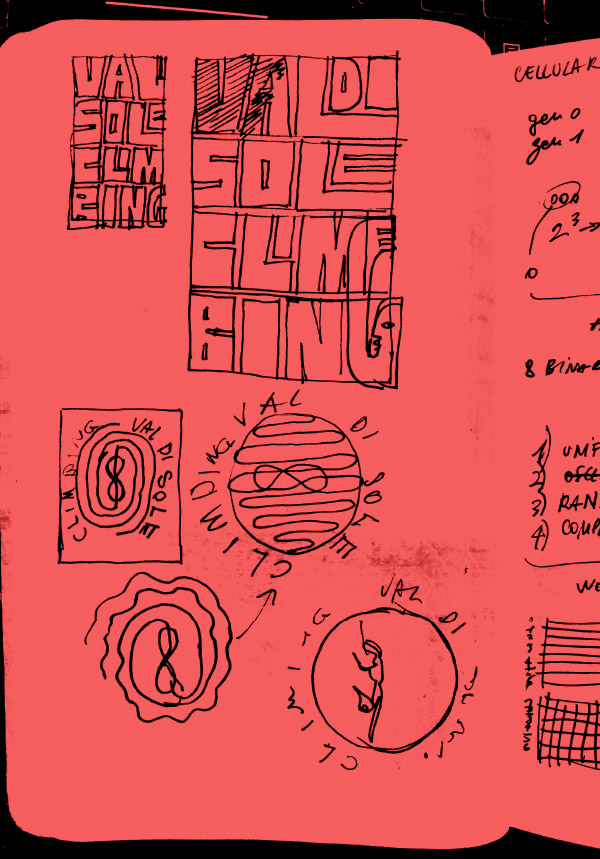 VAL
SOLE
CLIM
BING
VAL DI
SOLE
CLIM
BING
CLIMBING VAL DI SOLE
CLIMBING VAL DI SOLE
CLIMBING VAL DI
CELLULAR
gen 0
gen 1
000
2³→
0
8 BINAR
1) UNIF
2)
3) RAN
4) COMP
WE